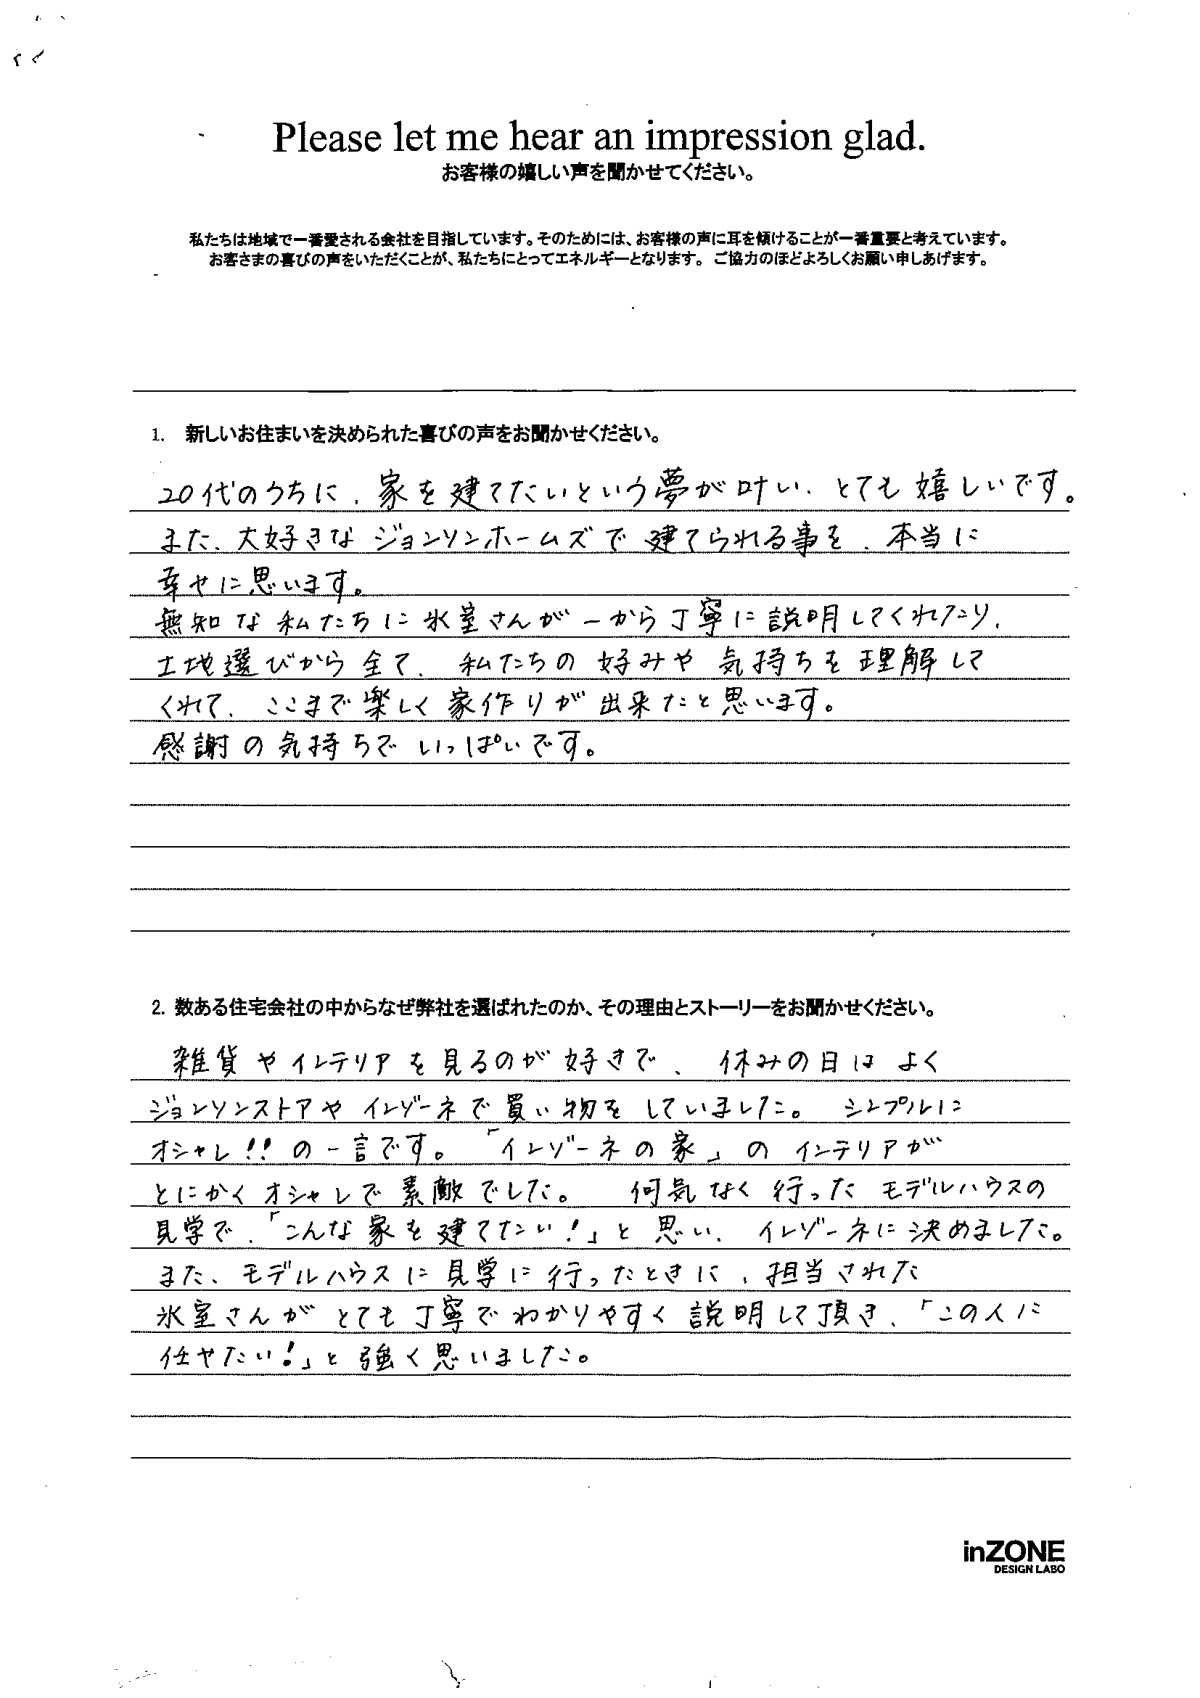 Please let me hear an impression glad.
お客様の嬉しい声を聞かせてください。
私たちは地域で一番愛される会社を目指しています。そのためには、お客様の声に耳を傾けることが一番重要と考えています。
お客さまの喜びの声をいただくことが、私たちにとってエネルギーとなります。ご協力のほどよろしくお願い申しあげます。
1. 新しいお住まいを決められた喜びの声をお聞かせください。
20代のうちに、家を建てたいという夢が叶い、とても嬉しいです。
また、大好きなジョンソンホームズで建てられる事を、本当に
幸せに思います。
無知な私たちに氷室さんが一から丁寧に説明してくれたり、
土地選びから全て、私たちの好みや気持ちを理解して
くれて、ここまで楽しく家作りが出来たと思います。
感謝の気持ちでいっぱいです。
2. 数ある住宅会社の中からなぜ弊社を選ばれたのか、その理由とストーリーをお聞かせください。
雑貨やインテリアを見るのが好きで、休みの日はよく
ジョンソンストアやインゾーネで買い物をしていました。シンプルに
オシャレ!!の一言です。「インゾーネの家」のインテリアが
とにかくオシャレで素敵でした。何気なく行ったモデルハウスの
見学で、「こんな家を建てたい!」と思い、インゾーネに決めました。
また、モデルハウスに見学に行ったときに、担当された
氷室さんがとても丁寧でわかりやすく説明して頂き、「この人に
任せたい!」と強く思いました。
inZONE
DESIGN LABO